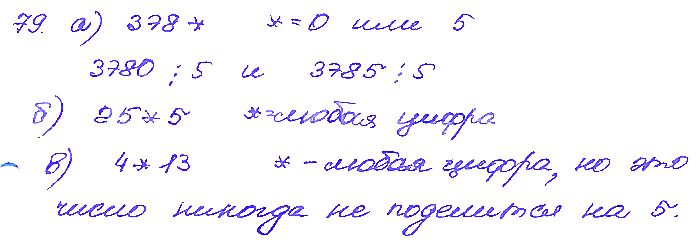 79. а) 378* *=0 или 5
3780 ⋮ 5 и 3785 ⋮ 5
б) 25*5 *=любая цифра
в) 4*13 * - любая цифра, но это
число никогда не поделится на 5.